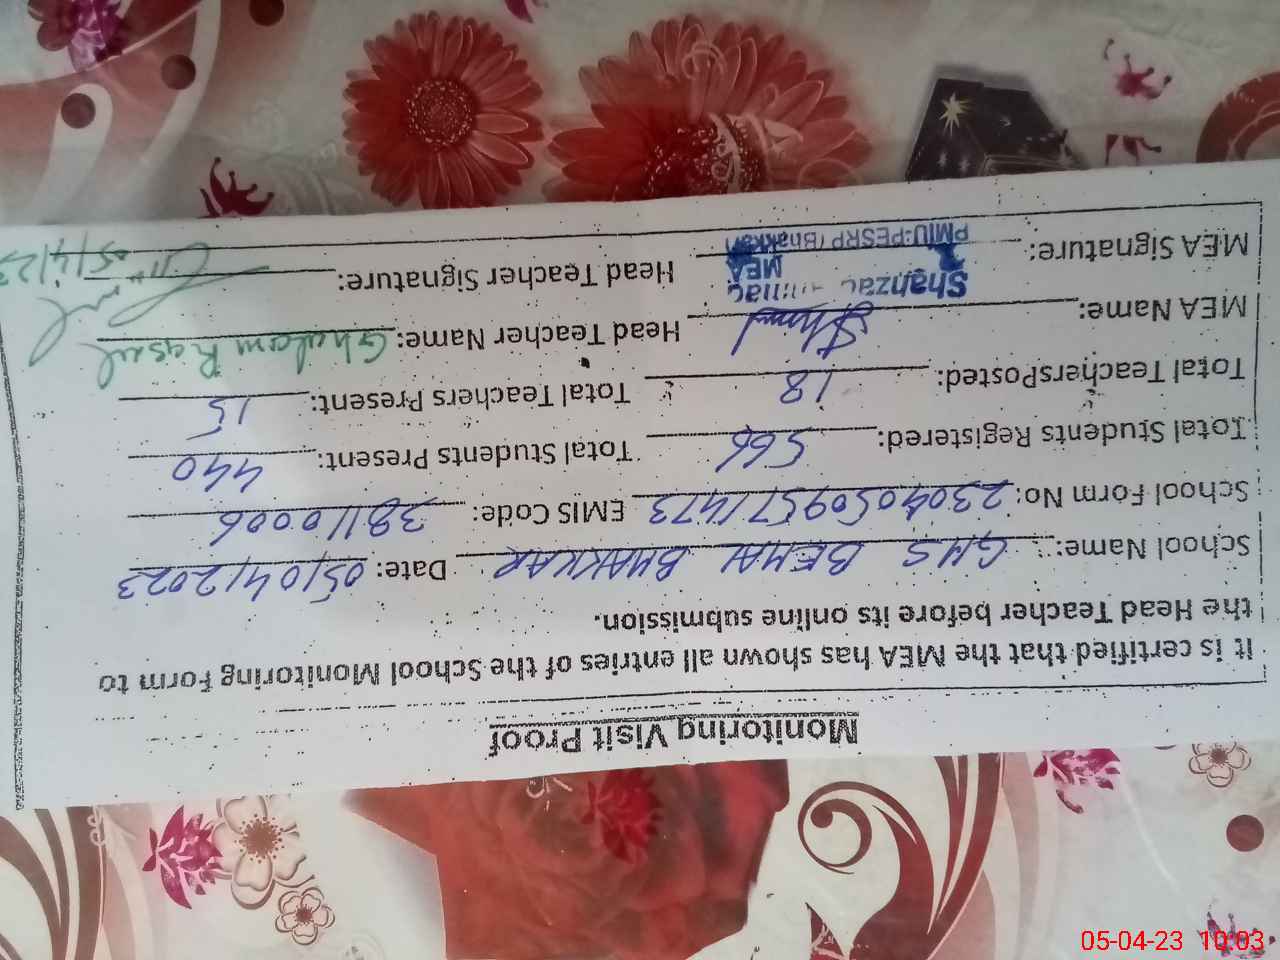 Monitoring Visit Proof
It is certified that the MEA has shown all entries of the School Monitoring Form to
the Head Teacher before its online submission.
School Name: GHS BEHAL BHAKKAR Date: 05/04/2023
School Form No: EMIS Code: 38110006
Total Students Registered: 566 Total Students Present: 440
Total TeachersPosted: 18 Total Teachers Present: 15
MEA Name: Head Teacher Name: Ghulam Rasul
Shahzad
MEA
MEA Signature: Head Teacher Signature: 05/4/23
PMIU-PESRP (Bhakkar)
05-04-23 10:03